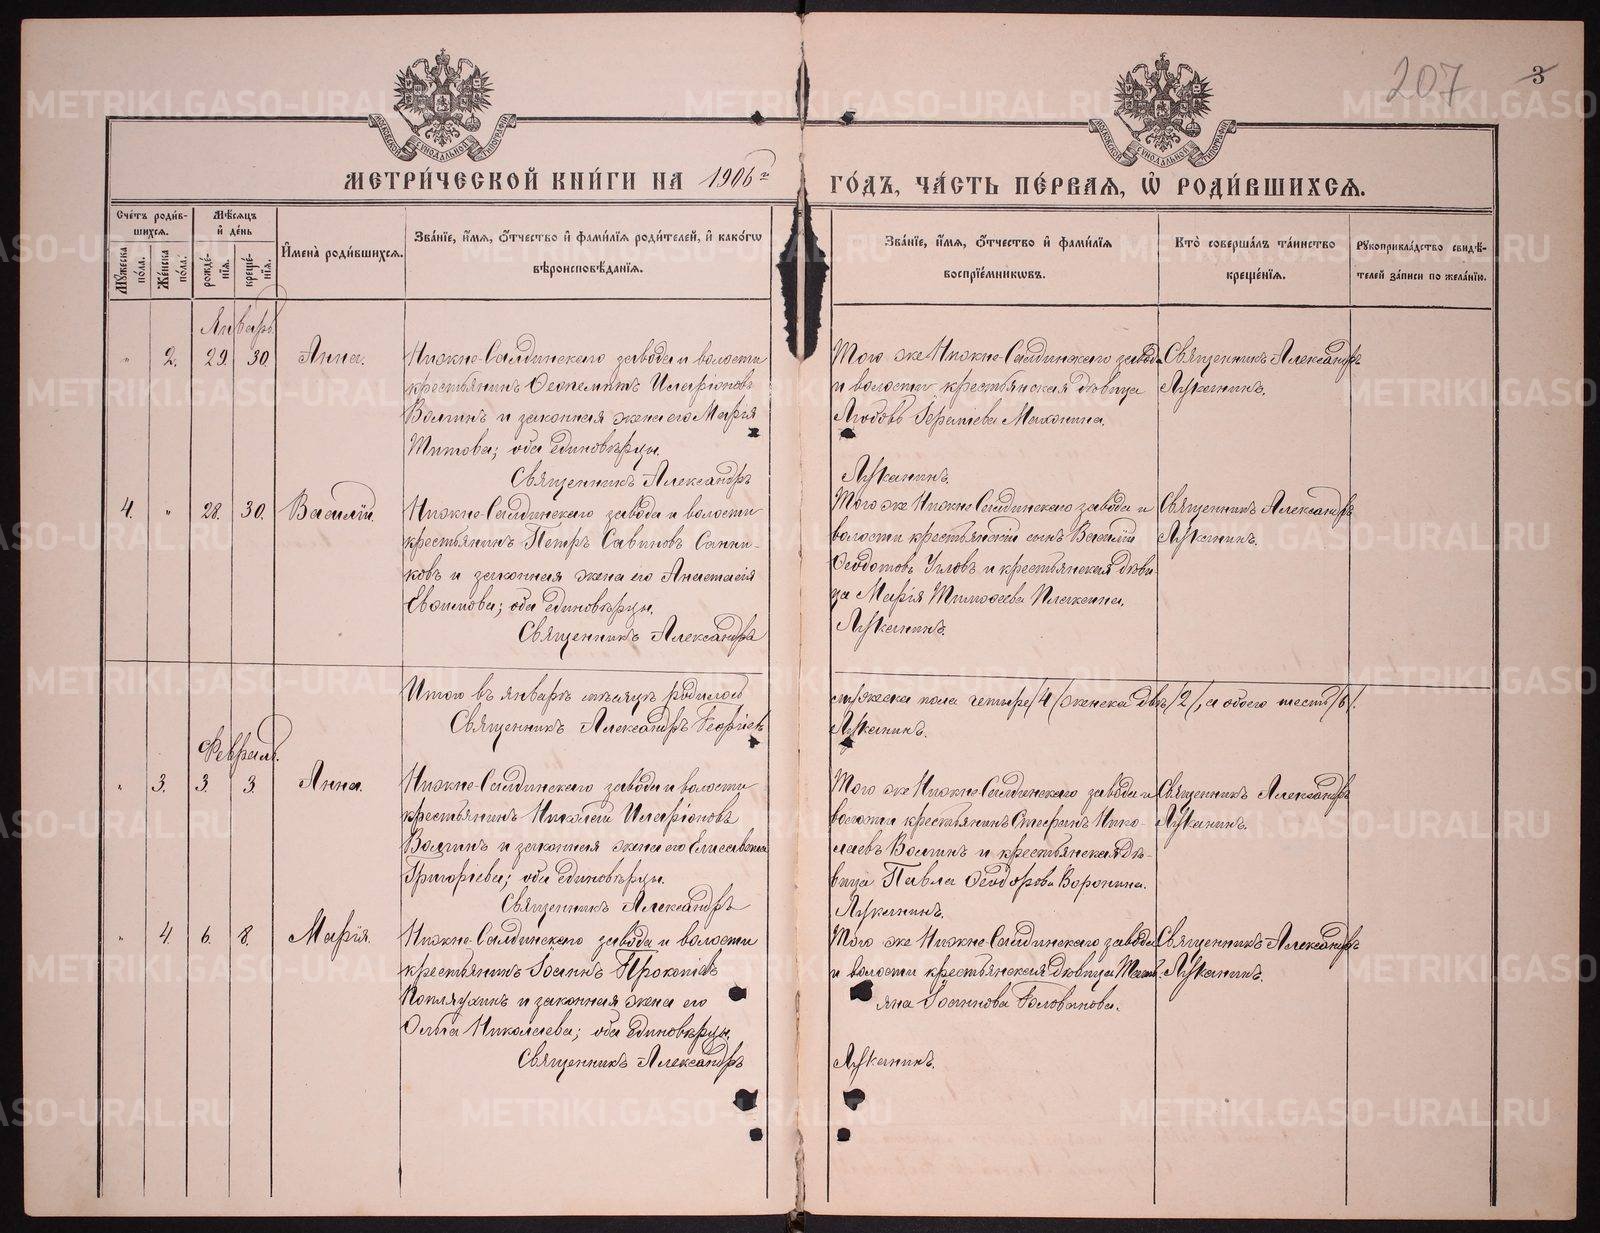 207
3
МЕТРИ́ЧЕСКОЙ КНИ́ГИ НА 1906й ГО́ДЪ, ЧА́СТЬ ПЕ́РВАЯ, Ѽ РОДИ́ВШИХСЯ.
Сче́тъ роди́вшихся.
Му́жеска по́ла.
Же́нска по́ла.
Мѣ́сяцъ и҆ де́нь
рожде́нїя.
креще́нїя.
И҆мена̀ роди́вшихся.
Зва́нїе, и҆́мя, ѻ҆́тчество и҆ фами́лїя роди́телей, и҆ како́гѡ
вѣроисповѣ́данїя.
Зва́нїе, и҆́мя, ѻ҆́тчество и҆ фами́лїя
воспрїе́мникѡвъ.
Кто̀ соверша́лъ та́инство
креще́нїя.
Рꙋкоприкла́дство свидѣ́-
телей за́писи по жела́нїю.
Январь.
" 2. 29. 30. Анна.
Нижне-Салдинскаго завода и волости
крестьянинъ Ѳеопемптъ Иларіоновъ
Волгинъ и законная жена его Марія
Титова; оба единовѣрцы.
Священникъ Александръ
Того же Нижне-Салдинскаго завода
и волости крестьянская дѣвица
Любовь
Луканинъ.
Священникъ Александръ
Луканинъ.
4. " 28. 30. Василій.
Нижне-Салдинскаго завода и волости
крестьянинъ Петръ Савиновъ Санни-
ковъ и законная жена его Анастасія
Евѳимова; оба единовѣрцы.
Священникъ Александръ
Того же Нижне-Салдинскаго завода и
волости крестьянскій сынъ Василій
Ѳеодотовъ и крестьянская дѣви-
ца Марія Тимоѳеева
Луканинъ.
Священникъ Александръ
Луканинъ.
Итого въ январѣ мѣсяцѣ родилось
мужеска пола четыре /4/ женска двѣ /2/, а обоего шесть /6/.
Священникъ Александръ Георгіевъ
Луканинъ.
Февраль.
" 3. 3. 3. Анна.
Нижне-Салдинскаго завода и волости
крестьянинъ Николай Иларіоновъ
Волгинъ и законная жена его Елисавета
Григоріева; оба единовѣрцы.
Священникъ Александръ
Того же Нижне-Салдинскаго завода и
волости крестьянинъ Стефанъ Нико-
лаевъ Волгинъ и крестьянская дѣ-
вица Павла Ѳеодорова Воронина.
Луканинъ.
Священникъ Александръ
Луканинъ.
" 4. 6. 8. Марія.
Нижне-Салдинскаго завода и волости
крестьянинъ Іоаннъ Прокопіевъ
и законная жена его
Ольга Николаева; оба единовѣрцы.
Священникъ Александръ
Того же Нижне-Салдинскаго завода
и волости крестьянская дѣвица Тать-
яна Іоаннова Голованова.
Луканинъ.
Священникъ Александръ
Луканинъ.
METRIKI.GASO-URAL.RU